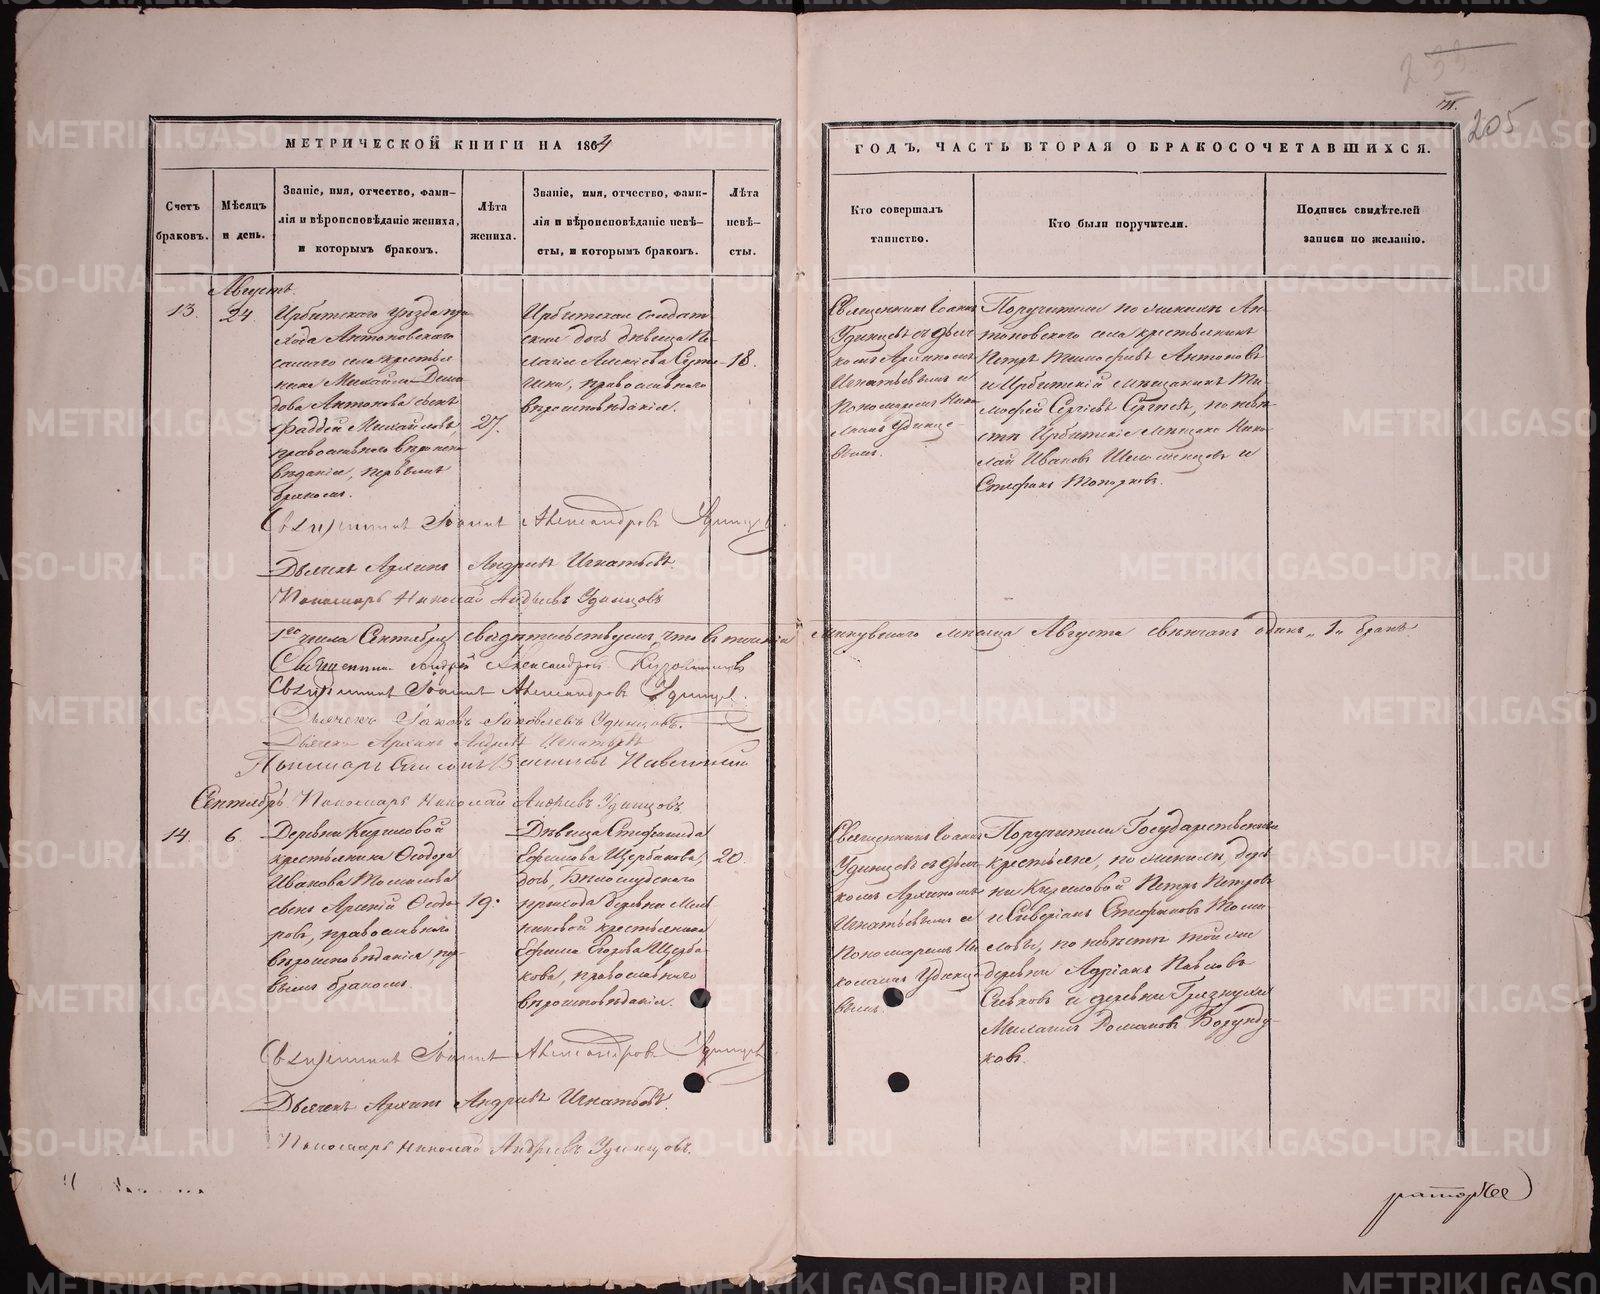 205
МЕТРИЧЕСКОЙ КНИГИ НА 1864
ГОДЪ, ЧАСТЬ ВТОРАЯ О БРАКОСОЧЕТАВШИХСЯ.
Счетъ браковъ.
Мѣсяцъ и день.
Званіе, имя, отчество, фами-
лія и вѣроисповѣданіе жениха,
и которымъ бракомъ.
Лѣта
жениха.
Званіе, имя, отчество, фами-
лія и вѣроисповѣданіе невѣ-
сты, и которымъ бракомъ.
Лѣта
невѣ-
сты.
Кто совершалъ
таинство.
Кто были поручители.
Подпись свидѣтелей
записи по желанію.
Августъ
13.
24
Ирбитскаго уѣзда при-
хода Антоновскаго
самаго села крестья
нина Михайла Деми
дова Антонова сынъ
Фаддей Михайловъ,
православнаго вѣроиспо
вѣданія, первымъ
бракомъ.
27.
Ирбитская солдат
ская дочь дѣвица Пе
лагія
православнаго
вѣроисповѣданія.
18.
Священникъ Іоаннъ
Удинцевъ съ дьяч
комъ Архипомъ
Игнатьевымъ и
Пономаремъ Нико
лаемъ Удинце-
вымъ.
Поручители по женихѣ Ан
тоновскаго села крестьянинъ
Петръ Тимофѣевъ Антоновъ
и Ирбитскій мѣщанинъ Ти
мофей Сергѣевъ по невѣ
стѣ Ирбитскіе мѣщане Нико
лай Ивановъ и
Стефанъ Топорковъ.
Священникъ Іоаннъ Александровъ Удинцевъ.
Дьячекъ Архипъ Андреевъ Игнатьевъ.
Пономарь Николай Андреевъ Удинцовъ
1го числа Сентября свидѣтельствуемъ, что въ теченіи минувшаго мѣсяца Августа свѣнчанъ одинъ „1„ бракъ.
Священникъ Андрей Александровъ
Священникъ Іоаннъ Александровъ Удинцевъ.
Дьячекъ Іаковъ Іаковлевъ Удинцовъ.
Дьячекъ Архипъ Андреевъ Игнатьевъ
Пономарь
Сентябрь. Пономарь Николай Андреевъ Удинцовъ
14.
6
Деревни Кириловой
крестьянина Ѳеодора
Иванова Томилова
сынъ Арсеній Ѳеодо
ровъ, православнаго
вѣроисповѣданія, пер-
вымъ бракомъ.
19.
Дѣвица Стефанида
Ефимова Щербакова,
дочь, Бѣлослудскаго
прихода деревни Мель
никовой крестьянина
Ефима Егорова Щерба
кова, православнаго
вѣроисповѣданія.
20.
Священникъ Іоаннъ
Удинцевъ съ дьяч
комъ Архипомъ
Игнатьевымъ и
Пономаремъ Ни
колаемъ Удинце
вымъ.
Поручители Государственные
крестьяне, по женихѣ, дерев
ни Кириловой Петръ Петровъ
и Сиверіанъ Стефановъ Томи
ловы, по невѣстѣ той же
деревни Адріанъ Павловъ
Сивковъ и деревни Грязнухи
Романовъ Борунду-
ковъ.
Священникъ Іоаннъ Александровъ Удинцевъ
Дьячекъ Архипъ Андреевъ Игнатьевъ.
Пономарь Николай Андреевъ Удинцовъ.
METRIKI.GASO-URAL.RU